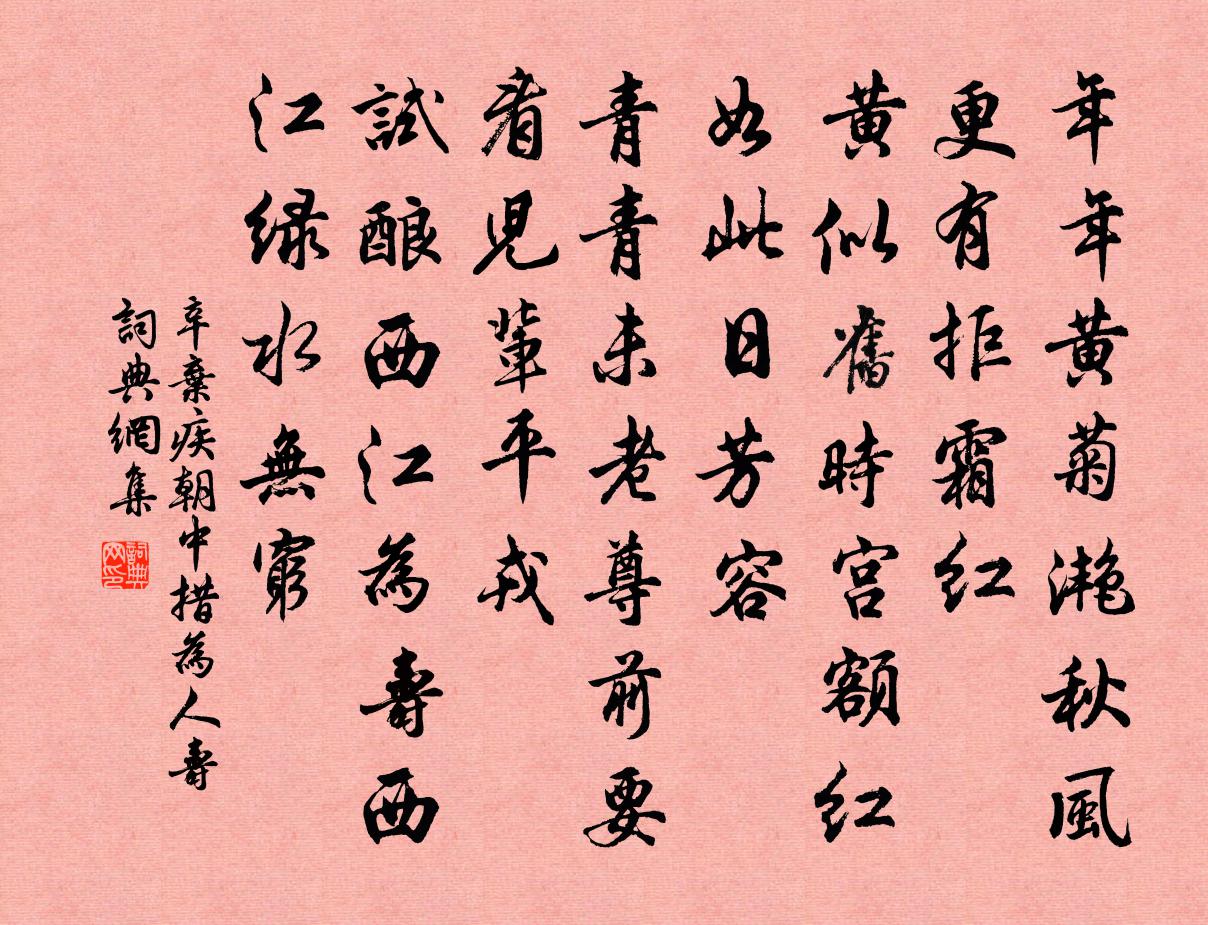 年年黄菊滟秋風
更有拒霜紅
黄似舊時宫額紅
如此日芳容
青青未老尊前要
看児輩平戎
試酿西江為壽西
江緑水無窮
辛棄疾朝中措為人壽
詞典網集
詞典网印